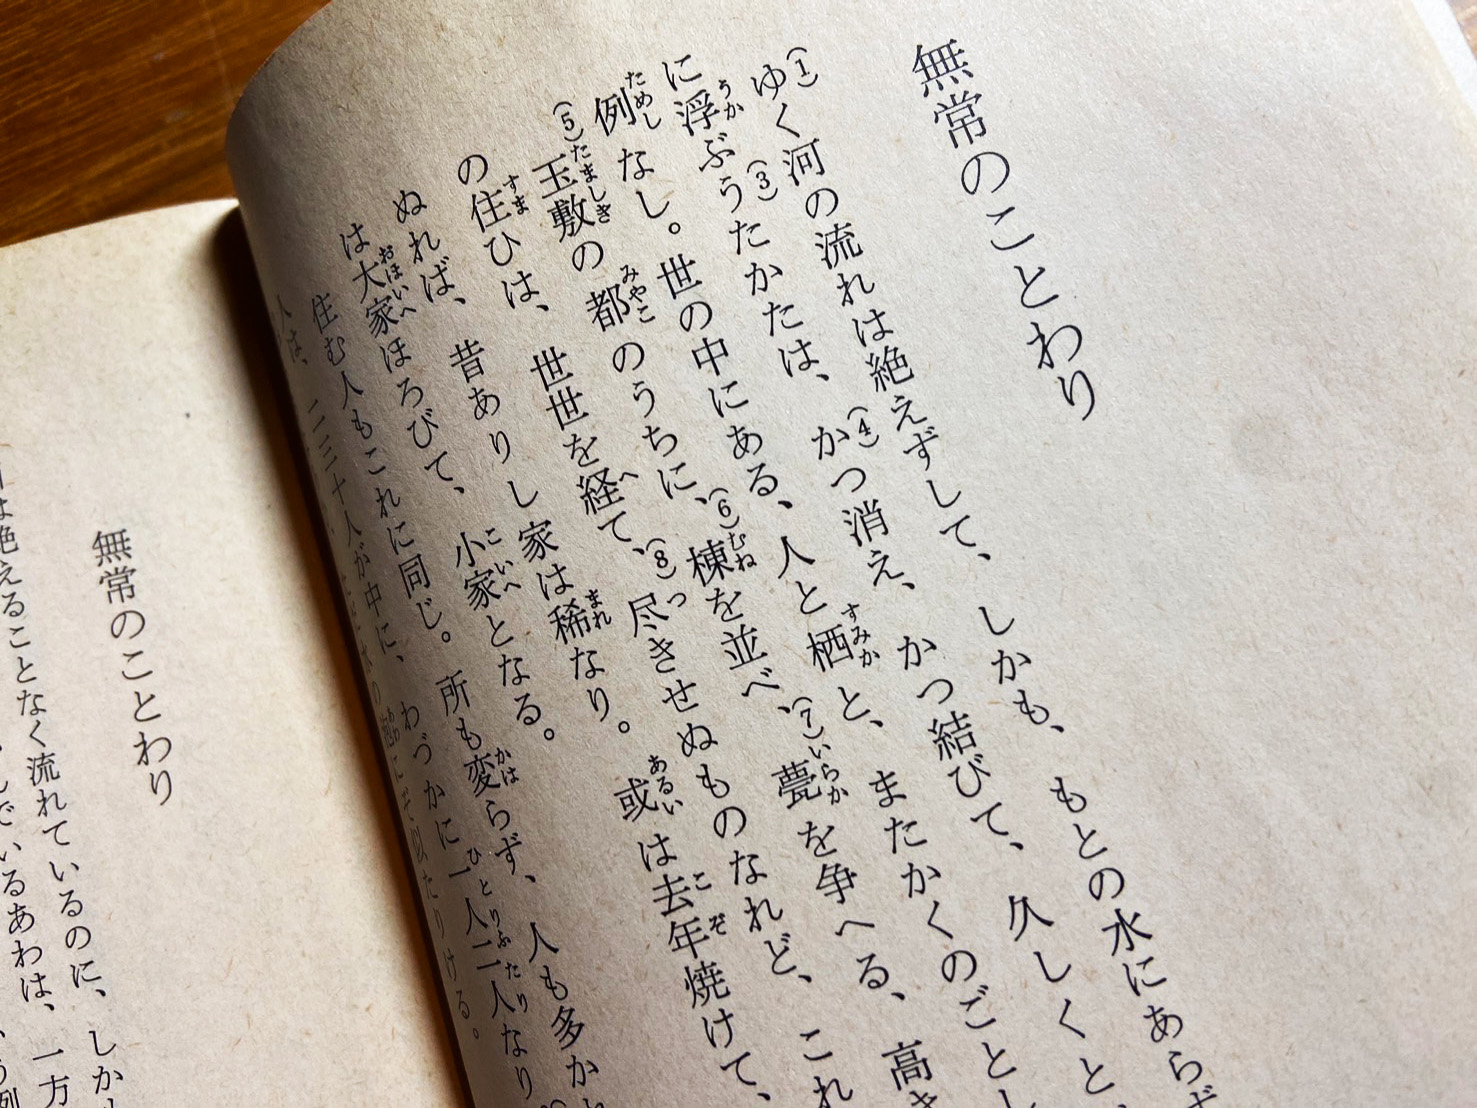 無常のことわり
(1)ゆく河の流れは絶えずして、しかも、もとの水にあらず
に浮ぶ(3)うたかたは、(4)かつ消え、かつ結びて、久しくと
例なし。世の中にある、人と栖と、またかくのごとし
(5)玉敷の都のうちに、(6)棟を並べ、(7)甍を争へる、高き
の住ひは、世世を経て、(8)尽きせぬものなれど、これ
ぬれば、昔ありし家は稀なり。或は去年焼けて、
は大家ほろびて、小家となる。
住む人もこれに同じ。所も変らず、人も多か
人は、二三十人が中に、わづかに一人二人なり
水の泡にぞ似たりける。
無常のことわり
は絶えることなく流れているのに、しかも
んでいるあわは、一方